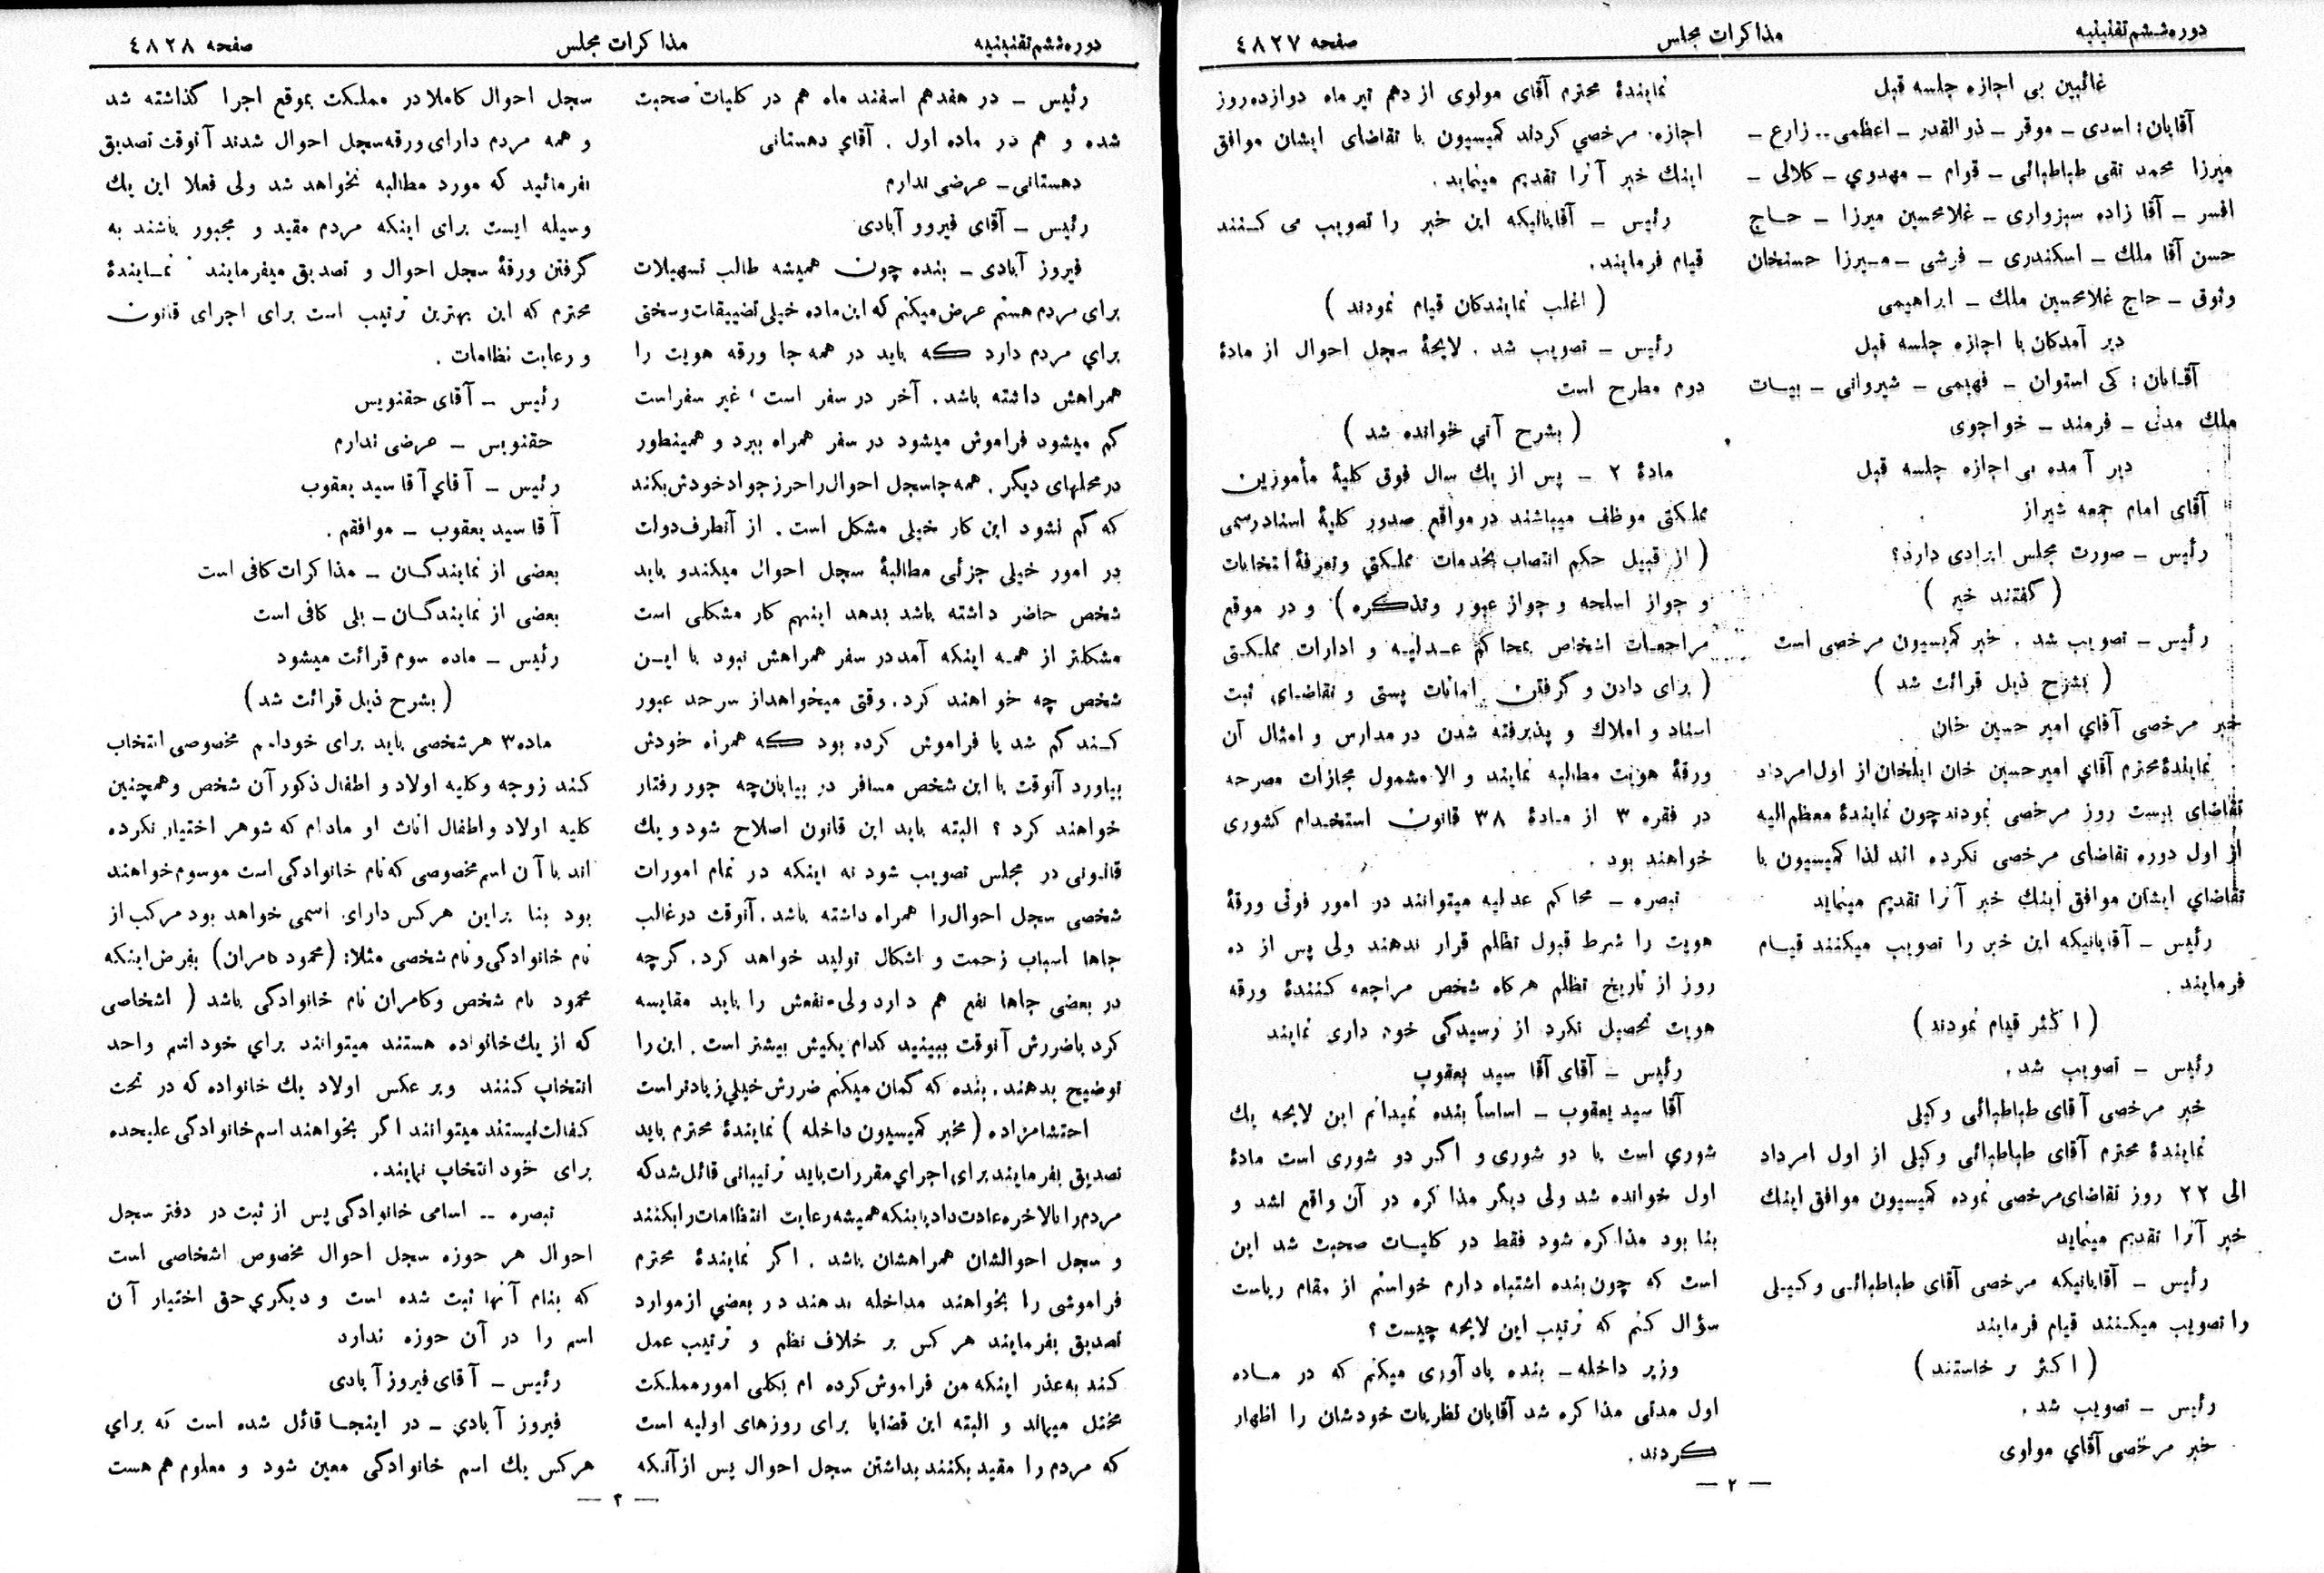 دوره ششم تقنینیه
مذاکرات مجلس
صفحه ٤٨٢٧
غائبین بی اجازه جلسه قبل
آقایان: اسدی – موقر – ذوالقدر – اعظمی – زارع –
میرزا محمد تقی طباطبائی – قوام – مهدوي – کلالی –
افسر – آقا زاده سبزواری – غلامحسین میرزا – حاج
حسن آقا ملك – اسکندری – فرشی – میرزا حسنخان
وثوق – حاج غلامحسین ملك – ابراهیمی
دیر آمدکان با اجازه جلسه قبل
آقایان: کی استوان – فهیمی – شیروانی – بیات
ملك مدنی – فرمند – خواجوی
دیر آمده بی اجازه جلسه قبل
آقای امام جمعه شیراز
رئیس – صورت مجلس ایرادی دارد؟
( گفتند خیر )
رئیس – تصویب شد . خبر کمیسیون مرخصی است
( بشرح ذیل قرائت شد )
خبر مرخصی آقاي امیر حسین خان
نمایندهٔ محترم آقاي امیرحسین خان ایلخان از اول امرداد
تقاضای بیست روز مرخصی نمودند چون نمایندهٔ معظم الیه
از اول دوره تقاضای مرخصی نکرده اند لذا کمیسیون با
تقاضاي ایشان موافق اینك خبر آنرا تقدیم مینماید
رئیس – آقایانیکه این خبر را تصویب میکنند قیام
فرمایند .
( اکثر قیام نمودند )
رئیس – تصویب شد .
خبر مرخصی آقای طباطبائی وکیلی
نمایندهٔ محترم آقای طباطبائی وکیلی از اول امرداد
الی ٢٢ روز تقاضای مرخصی نموده کمیسیون موافق اینك
خبر آنرا تقدیم مینماید
رئیس – آقایانیکه مرخصی آقای طباطبائی وکیلی
را تصویب میکنند قیام فرمایند
( اکثر بر خاستند )
رئیس – تصویب شد .
خبر مرخصی آقاي مولوی
نمایندهٔ محترم آقای مولوی از دهم تیر ماه دوازده روز
اجازه مرخصي کرداند کمیسیون با تقاضای ایشان موافق
اینك خبر آنرا تقدیم مینماید .
رئیس – آقایانیکه این خبر را تصویب می کنند
قیام فرمایند .
( اغلب نمایندکان قیام نمودند )
رئیس – تصویب شد . لایحهٔ سجل احوال از مادهٔ
دوم مطرح است
( بشرح آتي خوانده شد )
مادهٔ ٢ – پس از یك سال فوق کلیهٔ مأمورین
مملکتی موظف میباشند در مواقع صدور کلیهٔ اسناد رسمی
( از قبیل حکم انتصاب بخدمات مملکتي وتعرفهٔ انتخابات
و جواز اسلحه و جواز عبور وتذکره ) و در موقع
مراجعات اشخاص بمحاکم عدلیه و ادارات مملکتی
( برای دادن و گرفتن امانات پستی و تقاضای ثبت
اسناد و املاك و پذیرفته شدن در مدارس و امثال آن
ورقهٔ هویت مطالبه نمایند و الا مشمول مجازات مصرحه
در فقره ٣ از مادهٔ ٣٨ قانون استخدام کشوری
خواهند بود .
تبصره – محاکم عدلیه میتوانند در امور فوتی ورقهٔ
هویت را شرط قبول تظلم قرار ندهند ولی پس از ده
روز از تاریخ تظلم هرکاه شخص مراجعه کنندهٔ ورقه
هویت تحصیل نکرد از رسیدگی خود داری نمایند
رئیس – آقای آقا سید یعقوب
آقا سید یعقوب – اساساً بنده نمیدانم این لایحه یك
شوري است یا دو شوری و اگر دو شوری است مادهٔ
اول خوانده شد ولی دیگر مذاکره در آن واقع نشد و
بنا بود مذاکره شود فقط در کلیات صحبت شد این
است که چون بنده اشتباه دارم خواستم از مقام ریاست
سؤال کنم که ترتیب این لایحه چیست ؟
وزیر داخله – بنده یاد آوری میکنم که در ماده
اول مدتی مذاکره شد آقایان نظریات خودشان را اظهار
کردند .
— ٢ —
دوره ششم تقنینیه
مذاکرات مجلس
صفحه ٤٨٢٨
رئیس – در هفدهم اسفند ماه هم در کلیات صحبت
شده و هم در ماده اول . آقاي دهستانی
دهستانی – عرضی ندارم
رئیس – آقای فیروز آبادی
فیروز آبادی – بنده چون همیشه طالب تسهیلات
برای مردم هستم عرض میکنم که این ماده خیلی تضییقات و سختی
براي مردم دارد که باید در همه جا ورقه هویت را
همراهش داشته باشد . آخر در سفر است ، غیر سفر است
گم میشود فراموش میشود در سفر همراه ببرد و همینطور
در محلهای دیگر . همه جا سجل احوال را حرز جواد خودش بکند
که گم نشود این کار خیلی مشکل است . از آنطرف دولت
در امور خیلی جزئی مطالبهٔ سجل احوال میکند و باید
شخص حاضر داشته باشد بدهد اینهم کار مشکلی است
مشکلتر از همه اینکه آمد در سفر همراهش نبود با این
شخص چه خواهند کرد . وقتی میخواهد از سرحد عبور
کند گم شد یا فراموش کرده بود که همراه خودش
بیاورد آنوقت با این شخص مسافر در بیابان چه جور رفتار
خواهند کرد ؟ البته باید این قانون اصلاح شود و یك
قانونی در مجلس تصویب شود نه اینکه در تمام امورات
شخصی سجل احوال را همراه داشته باشد . آنوقت در غالب
جاها اسباب زحمت و اشکال تولید خواهد کرد . گرچه
در بعضی جاها نفع هم دارد ولی منفعتش را باید مقایسه
کرد با ضررش آنوقت ببینید کدام یکیش بیشتر است . این را
توضیح بدهند . بنده که گمان میکنم ضررش خیلي زیادتر است
احتشامزاده ( مخبر کمیسیون داخله ) نمایندهٔ محترم باید
تصدیق بفرمایند برای اجراي مقررات باید ترتیباتی قائل شد که
مردم را بالاخره عادت داد باینکه همیشه رعایت انتظامات را بکنند
و سجل احوالشان همراهشان باشد . اگر نمایندهٔ محترم
فراموشی را بخواهند مداخله بدهند در بعضي از موارد
تصدیق بفرمایند هر کس بر خلاف نظم و ترتیب عمل
کند به عذر اینکه من فراموش کرده ام بکلی امور مملکت
مختل میماند و البته این قضایا برای روزهای اولیه است
که مردم را مقید بکنند بداشتن سجل احوال پس از آنکه
سجل احوال کاملا در مملکت بموقع اجرا گذاشته شد
و همه مردم دارای ورقه سجل احوال شدند آنوقت تصدیق
بفرمائید که مورد مطالبه نخواهد شد ولی فعلا این یك
وسیله ایست برای اینکه مردم مقید و مجبور باشند به
گرفتن ورقهٔ سجل احوال و تصدیق میفرمایند نمایندهٔ
محترم که این بهترین ترتیب است برای اجرای قانون
و رعایت نظامات .
رئیس – آقای حقنویس
حقنویس – عرضی ندارم
رئیس – آقاي آقا سید یعقوب
آقا سید یعقوب – موافقم .
بعضی از نمایندگان – مذاکرات کافی است
بعضی از نمایندگان – بلی کافی است
رئیس – ماده سوم قرائت میشود
( بشرح ذیل قرائت شد )
ماده ٣ هر شخصی باید برای خود اسم مخصوصی انتخاب
کند زوجه و کلیه اولاد و اطفال ذکور آن شخص و همچنین
کلیه اولاد و اطفال اناث او مادام که شوهر اختیار نکرده
اند با آن اسم مخصوصی که نام خانوادگی است موسوم خواهند
بود بنا براین هر کس دارای اسمی خواهد بود مرکب از
نام خانوادگی و نام شخصی مثلا: (محمود کامران) بفرض اینکه
محمود نام شخص و کامران نام خانوادگی باشد ( اشخاصی
که از یك خانواده هستند میتوانند براي خود اسم واحد
انتخاب کنند و بر عکس اولاد یك خانواده که در تحت
کفالت نیستند میتوانند اگر بخواهند اسم خانوادگی علیحده
برای خود انتخاب نمایند .
تبصره – اسامی خانوادگی پس از ثبت در دفتر سجل
احوال هر حوزه سجل احوال مخصوص اشخاصی است
که بنام آنها ثبت شده است و دیگري حق اختیار آن
اسم را در آن حوزه ندارد
رئیس – آقای فیروز آبادی
فیروز آبادي – در اینجا قائل شده است که براي
هر کس یك اسم خانوادگی معین شود و معلوم هم هست
— ٢ —